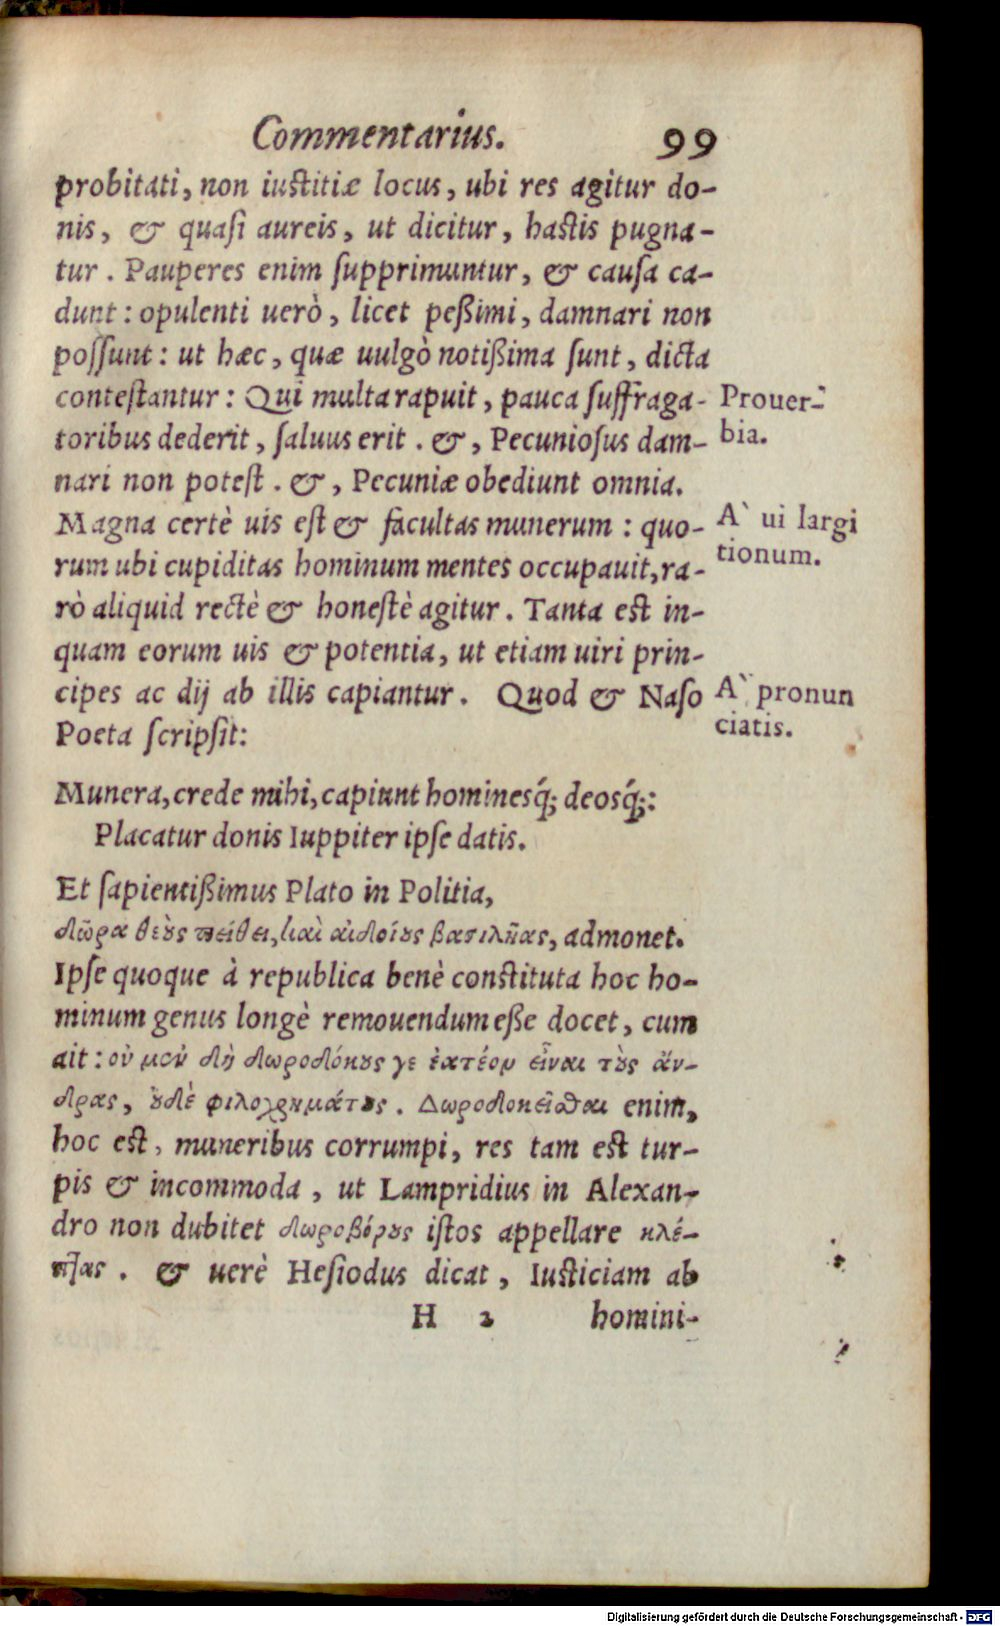 Commentarius. 99
probitati, non iustitiæ locus, ubi res agitur do-
nis, & quasi aureis, ut dicitur, hastis pugna-
tur. Pauperes enim supprimuntur, & causa ca-
dunt: opulenti uerò, licet peßimi, damnari non
possunt: ut hæc, quæ uulgò notißima sunt, dicta
contestantur: Qui multa rapuit, pauca suffraga-
toribus dederit, saluus erit. &, Pecuniosus dam-
nari non potest. &, Pecuniæ obediunt omnia.
Prouer-
bia.
Magna certè uis est & facultas munerum: quo-
rum ubi cupiditas hominum mentes occupauit, ra-
rò aliquid rectè & honestè agitur. Tanta est in-
quam eorum uis & potentia, ut etiam uiri prin-
cipes ac dij ab illis capiantur. Quod & Naso
Poeta scripsit:
A` ui largi
tionum.
A` pronun
ciatis.
Munera, crede mihi, capiunt hominesq́; deosq́;:
Placatur donis Iuppiter ipse datis.
Et sapientißimus Plato in Politia,
δῶρα θεοὺς πείθει, καὶ αἰδοίους βασιλῆας, admonet.
Ipse quoque à republica benè constituta hoc ho-
minum genus longè remouendum eße docet, cum
ait: οὐ μὲν δὴ δωροδόκους γε ἐατέον εἶναι τοὺς ἄν-
δρας, οὐδὲ φιλοχρημάτους. Δωροδοκεῖσθαι enim,
hoc est, muneribus corrumpi, res tam est tur-
pis & incommoda, ut Lampridius in Alexan-
dro non dubitet δωροβόρους istos appellare κλέ-
πτας. & uerè Hesiodus dicat, Iusticiam ab
H 2 homini-
Digitalisierung gefördert durch die Deutsche Forschungsgemeinschaft - DFG